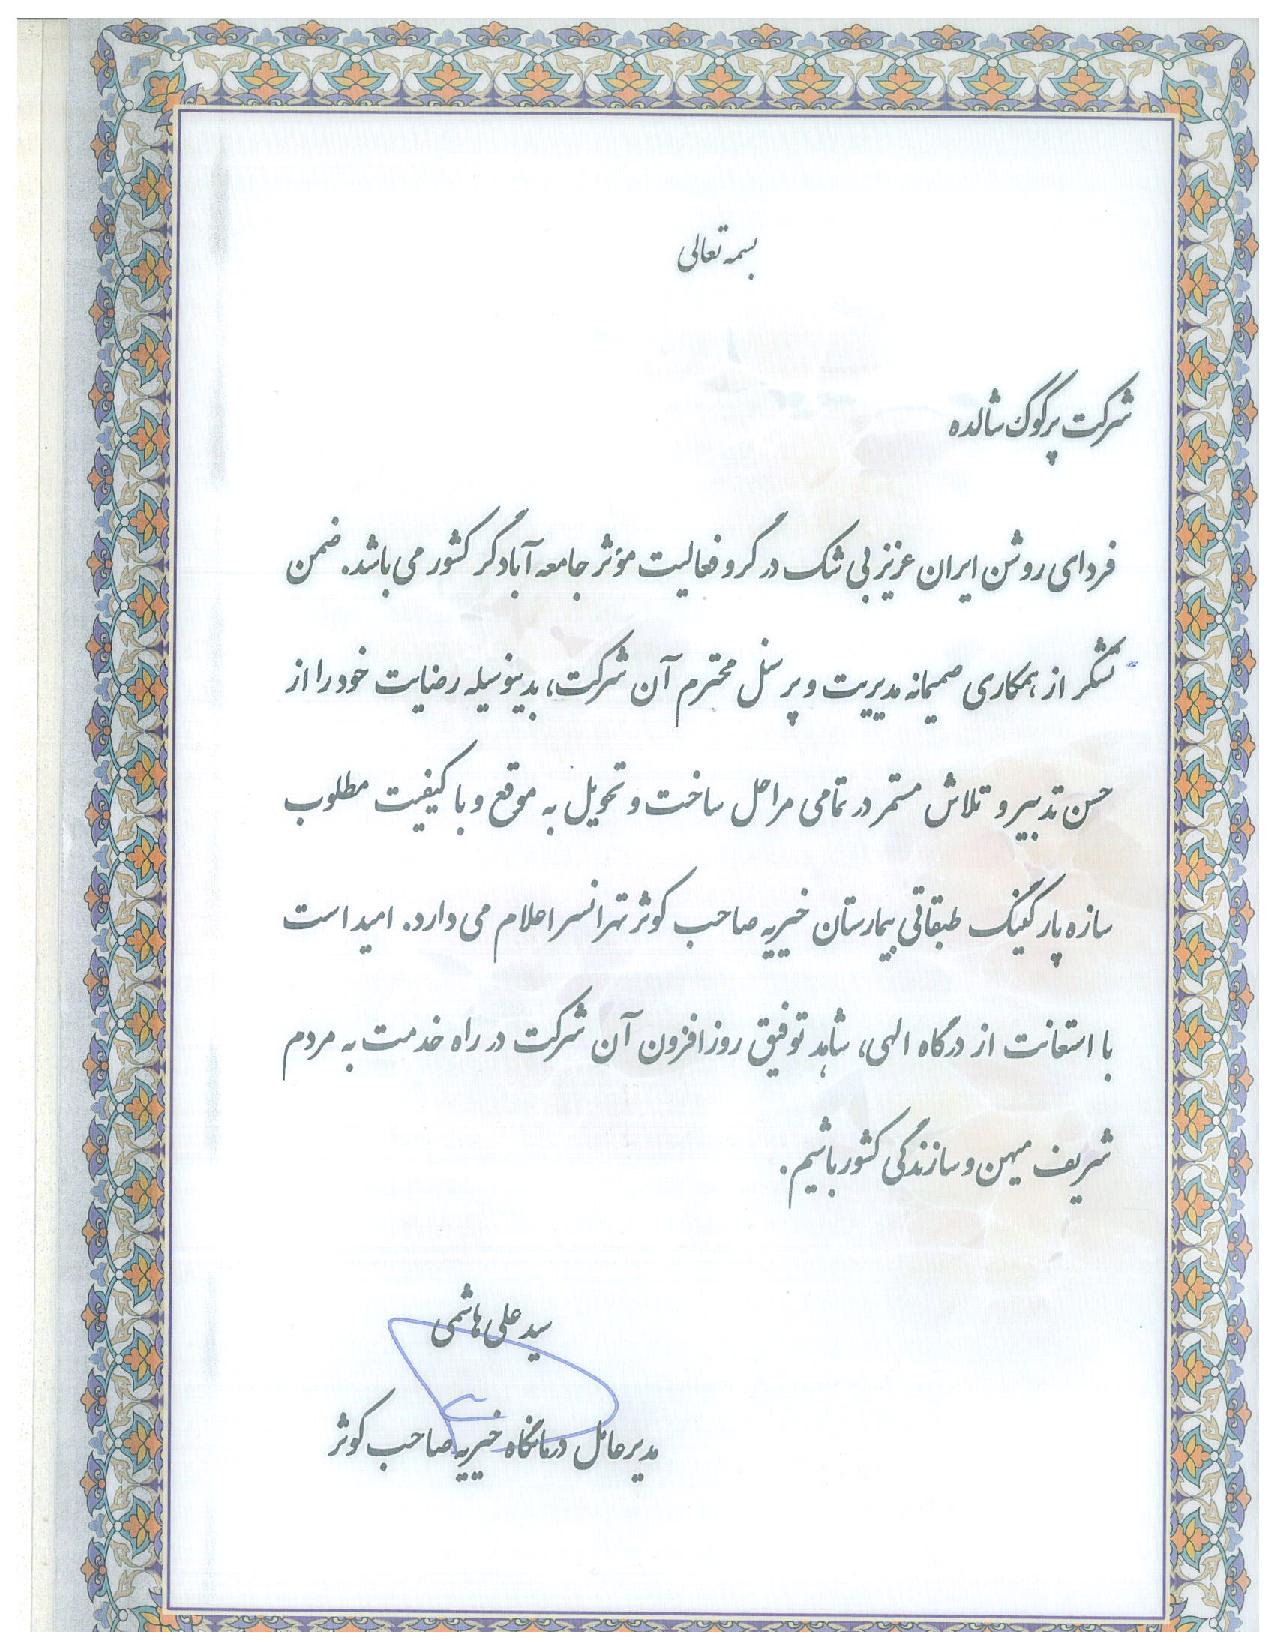 بسمه تعالی
شرکت پرگوک شالده
فردای روشن ایران عزیز بی شک در گرو فعالیت مؤثر جامعه آبادگر کشور می باشد. ضمن
تشکر از همکاری صمیمانه مدیریت و پرسنل محترم آن شرکت، بدینوسیله رضایت خود را از
حسن تدبیر و تلاش مستمر در تمامی مراحل ساخت و تحویل به موقع و با کیفیت مطلوب
سازه پارکینگ طبقاتی بیمارستان خیریه صاحب کوثر تهرانسر اعلام می دارد. امید است
با استعانت از درگاه الهی، شاهد توفیق روزافزون آن شرکت در راه خدمت به مردم
شریف میهن و سازندگی کشور باشیم.
سید علی هاشمی
مدیرعامل درمانگاه خیریه صاحب کوثر